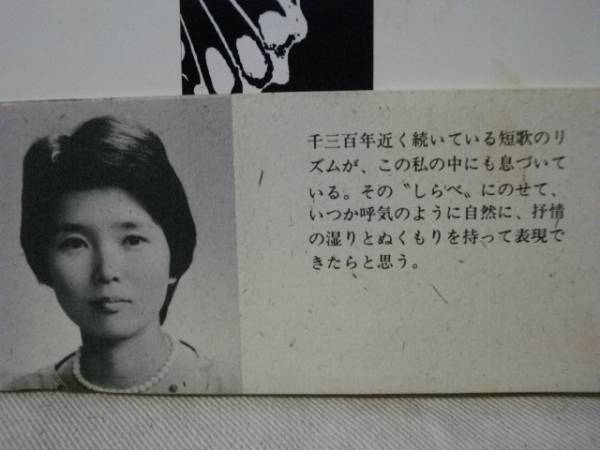 千三百年近く続いている短歌のリ
ズムが、この私の中にも息づいて
いる。その〝しらべ〟にのせて、
いつか呼気のように自然に、抒情
の湿りとぬくもりを持って表現で
きたらと思う。